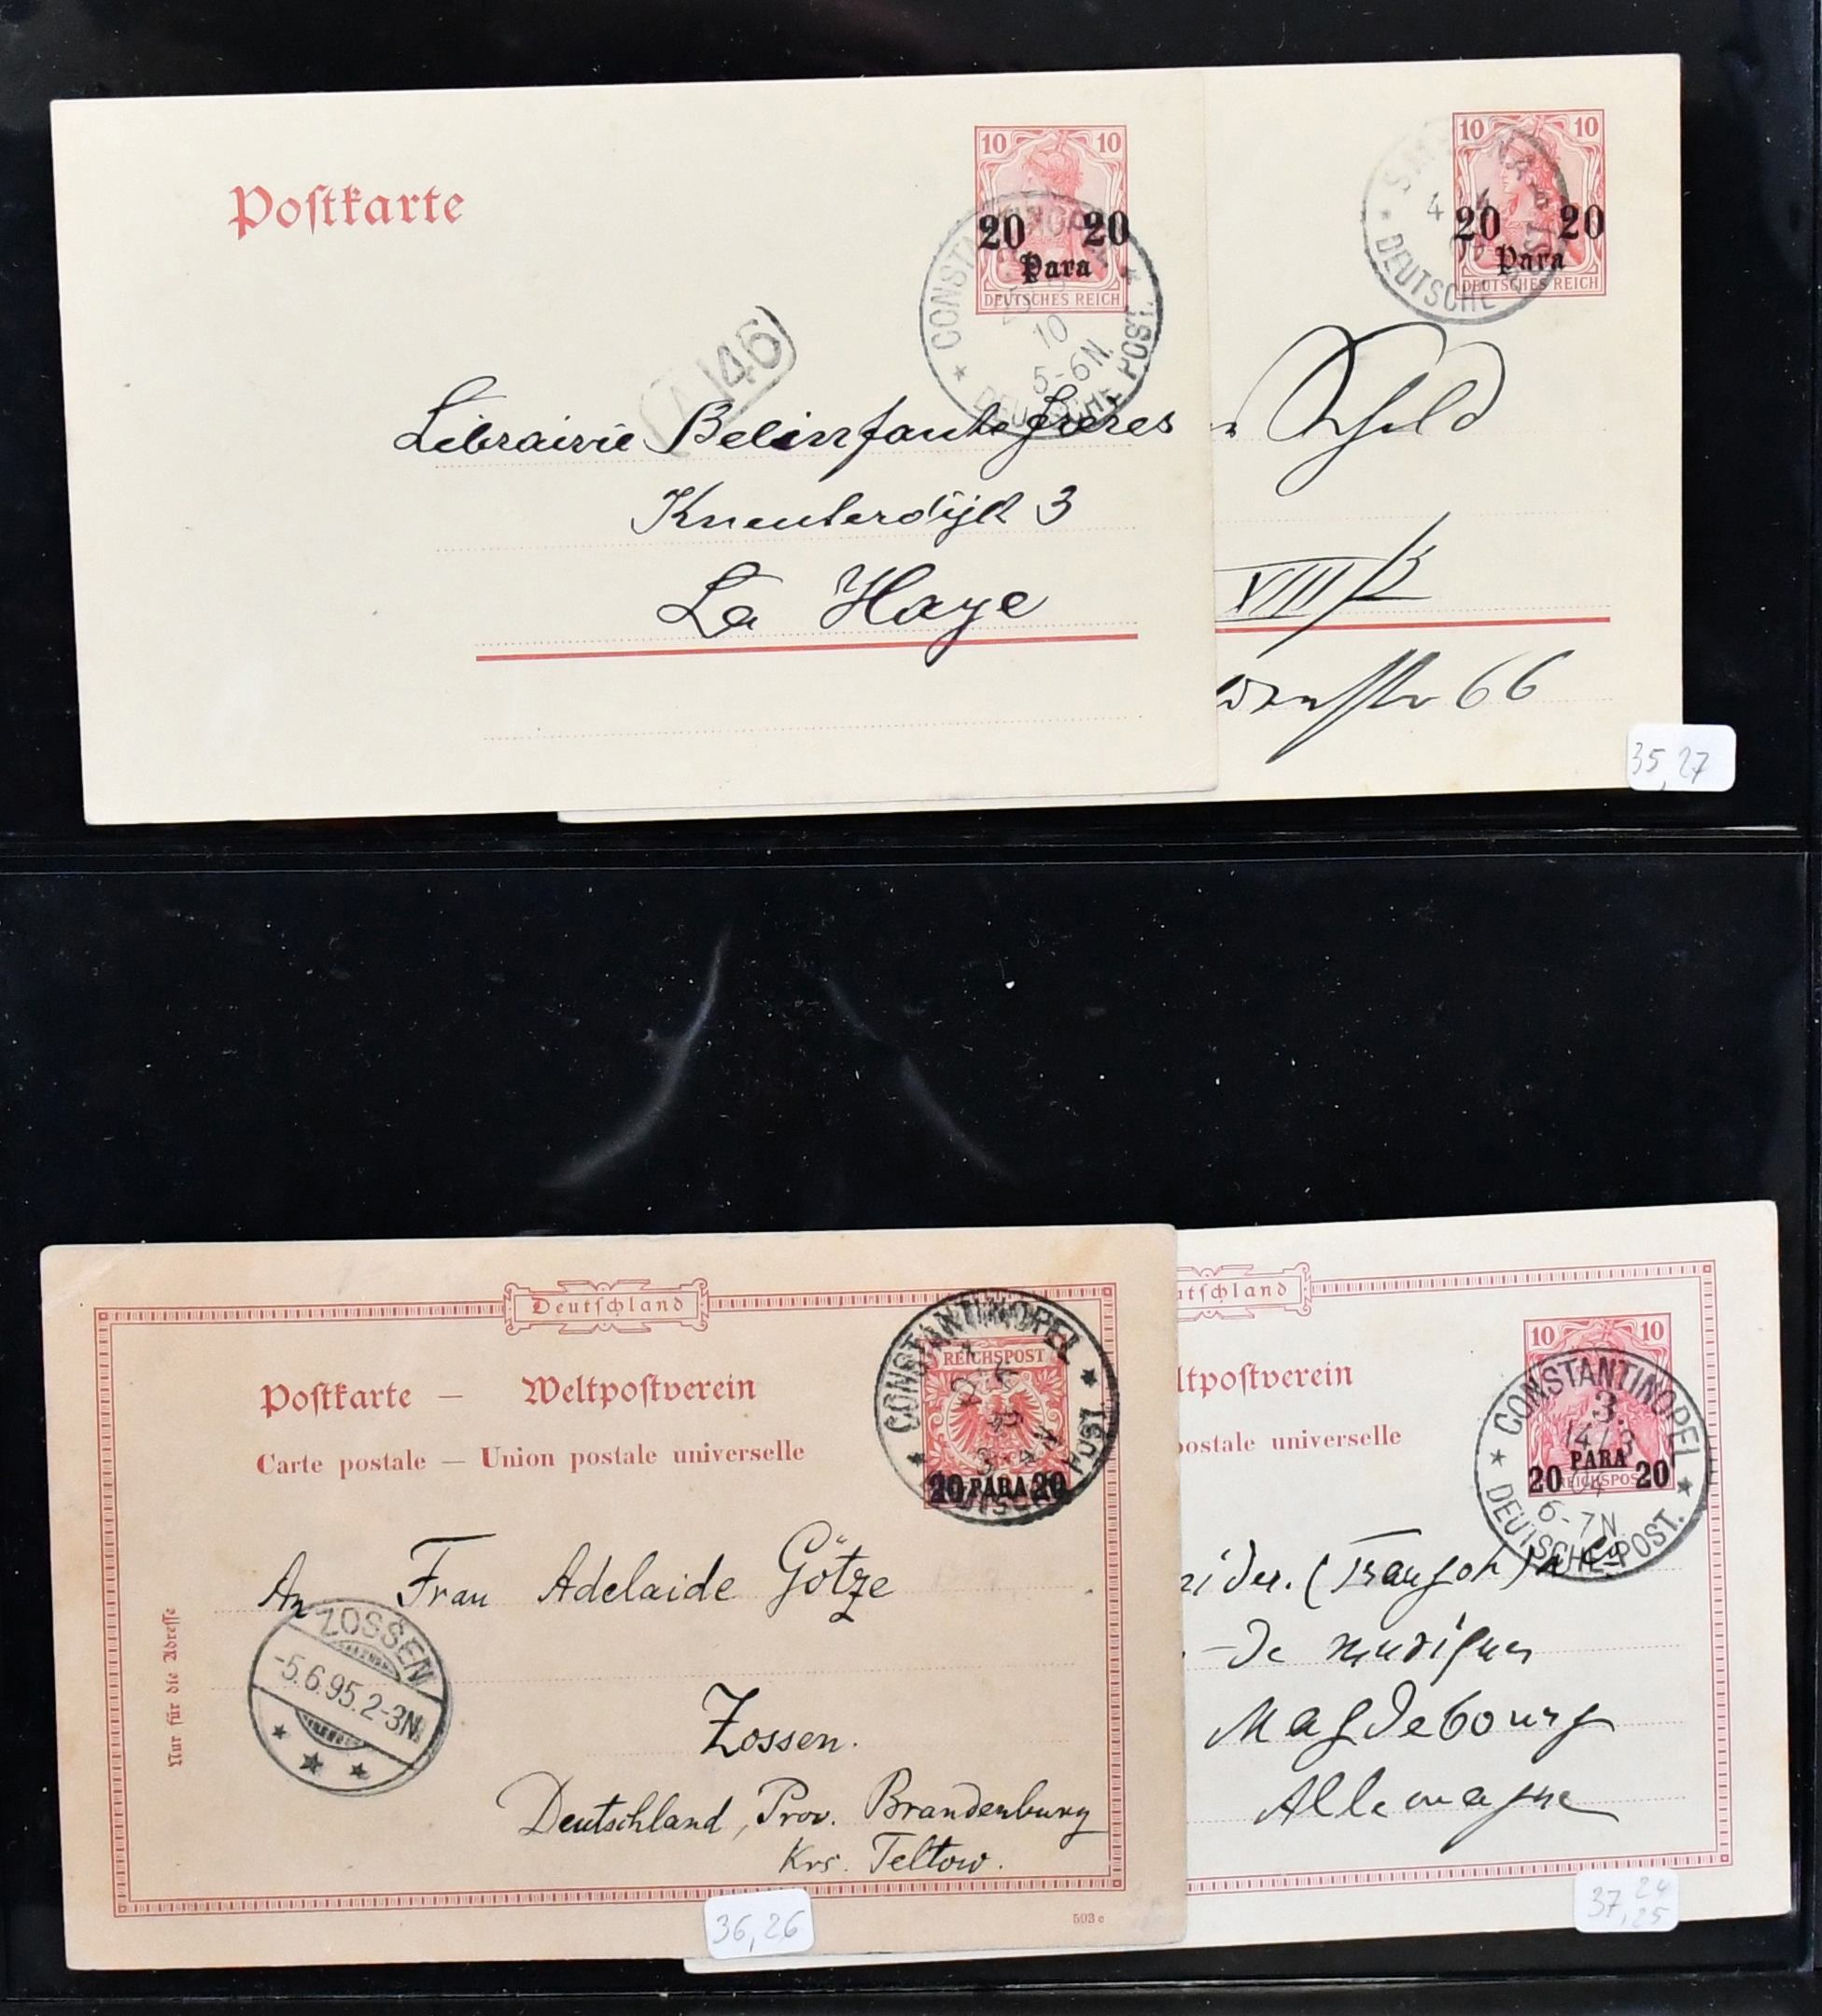 Postkarte
10 10
20 20
Para
DEUTSCHES REICH
CONSTANTINOPEL
10
5-6N.
DEUTSCHE POST.
46
Librairie Belinfante frères
Kneuterdijk 3
La Haye
10 10
20 20
Para
DEUTSCHES REICH
DEUTSCHE POST
4
VIII/2
66
35,27
Deutschland
Postkarte — Weltpostverein
Carte postale — Union postale universelle
REICHSPOST
20 PARA 20
CONSTANTINOPEL
POST
Nur für die Adresse
An Frau Adelaide Götze
ZOSSEN
-5.6.95.2-3N.
Zossen.
Deutschland, Prov. Brandenburg
Krs. Teltow.
593 e
36,26
utschland
ltpostverein
postale universelle
10 10
PARA
20 20
REICHSPOST
CONSTANTINOPEL
3.
14/3
04
6-7N.
DEUTSCHE POST.
de musique
Magdebourg
Allemagne
37,24
25